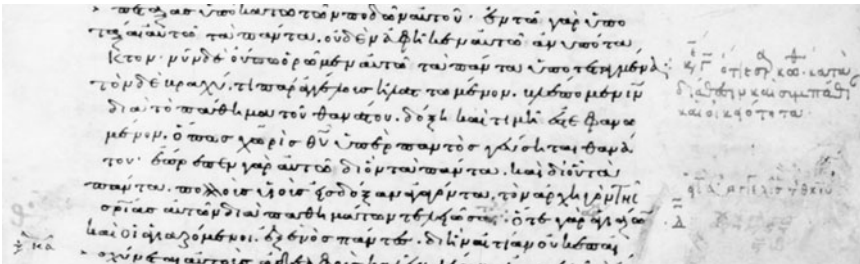 πέταξας ὑποκάτω τῶν ποδῶν αὐτοῦ· ἐν τῷ γὰρ ὑπο
τάξαι αὐτῷ τὰ πάντα. οὐδὲν ἀφῆκεν αὐτῷ ἀνυπότα
κτον· νῦν δὲ οὔπω ὁρῶμεν αὐτῷ τὰ πάντα ὑποτεταγμένα
τὸν δὲ βραχύ τι παρ' ἀγγέλους ἠλαττωμένον. βλέπομεν ιν
διὰ τὸ πάθημα τοῦ θανάτου. δόξῃ καὶ τιμῇ ἐστεφανω
μένον. ὅπως χωρὶς θυ ὑπὲρ παντὸς γεύσηται θανά
του· ἔπρεπεν γὰρ αὐτῷ δι' ὃν τὰ πάντα. καὶ δι' οὗ τὰ
πάντα. πολλοὺς υἱοὺς εἰς δόξαν ἀγαγόντα. τὸν ἀρχηγὸν τῆς
σριας αὐτῶν διὰ παθημάτων τελειῶσαι. ὅ τε γὰρ ἁγιάζων
καὶ οἱ ἁγιαζόμενοι. ἐξ ἑνὸς πάντες. δι' ἣν αἰτίαν οὐκ ἐπαι
σχύνεται αὐτοὺς ἀδελφοὺς